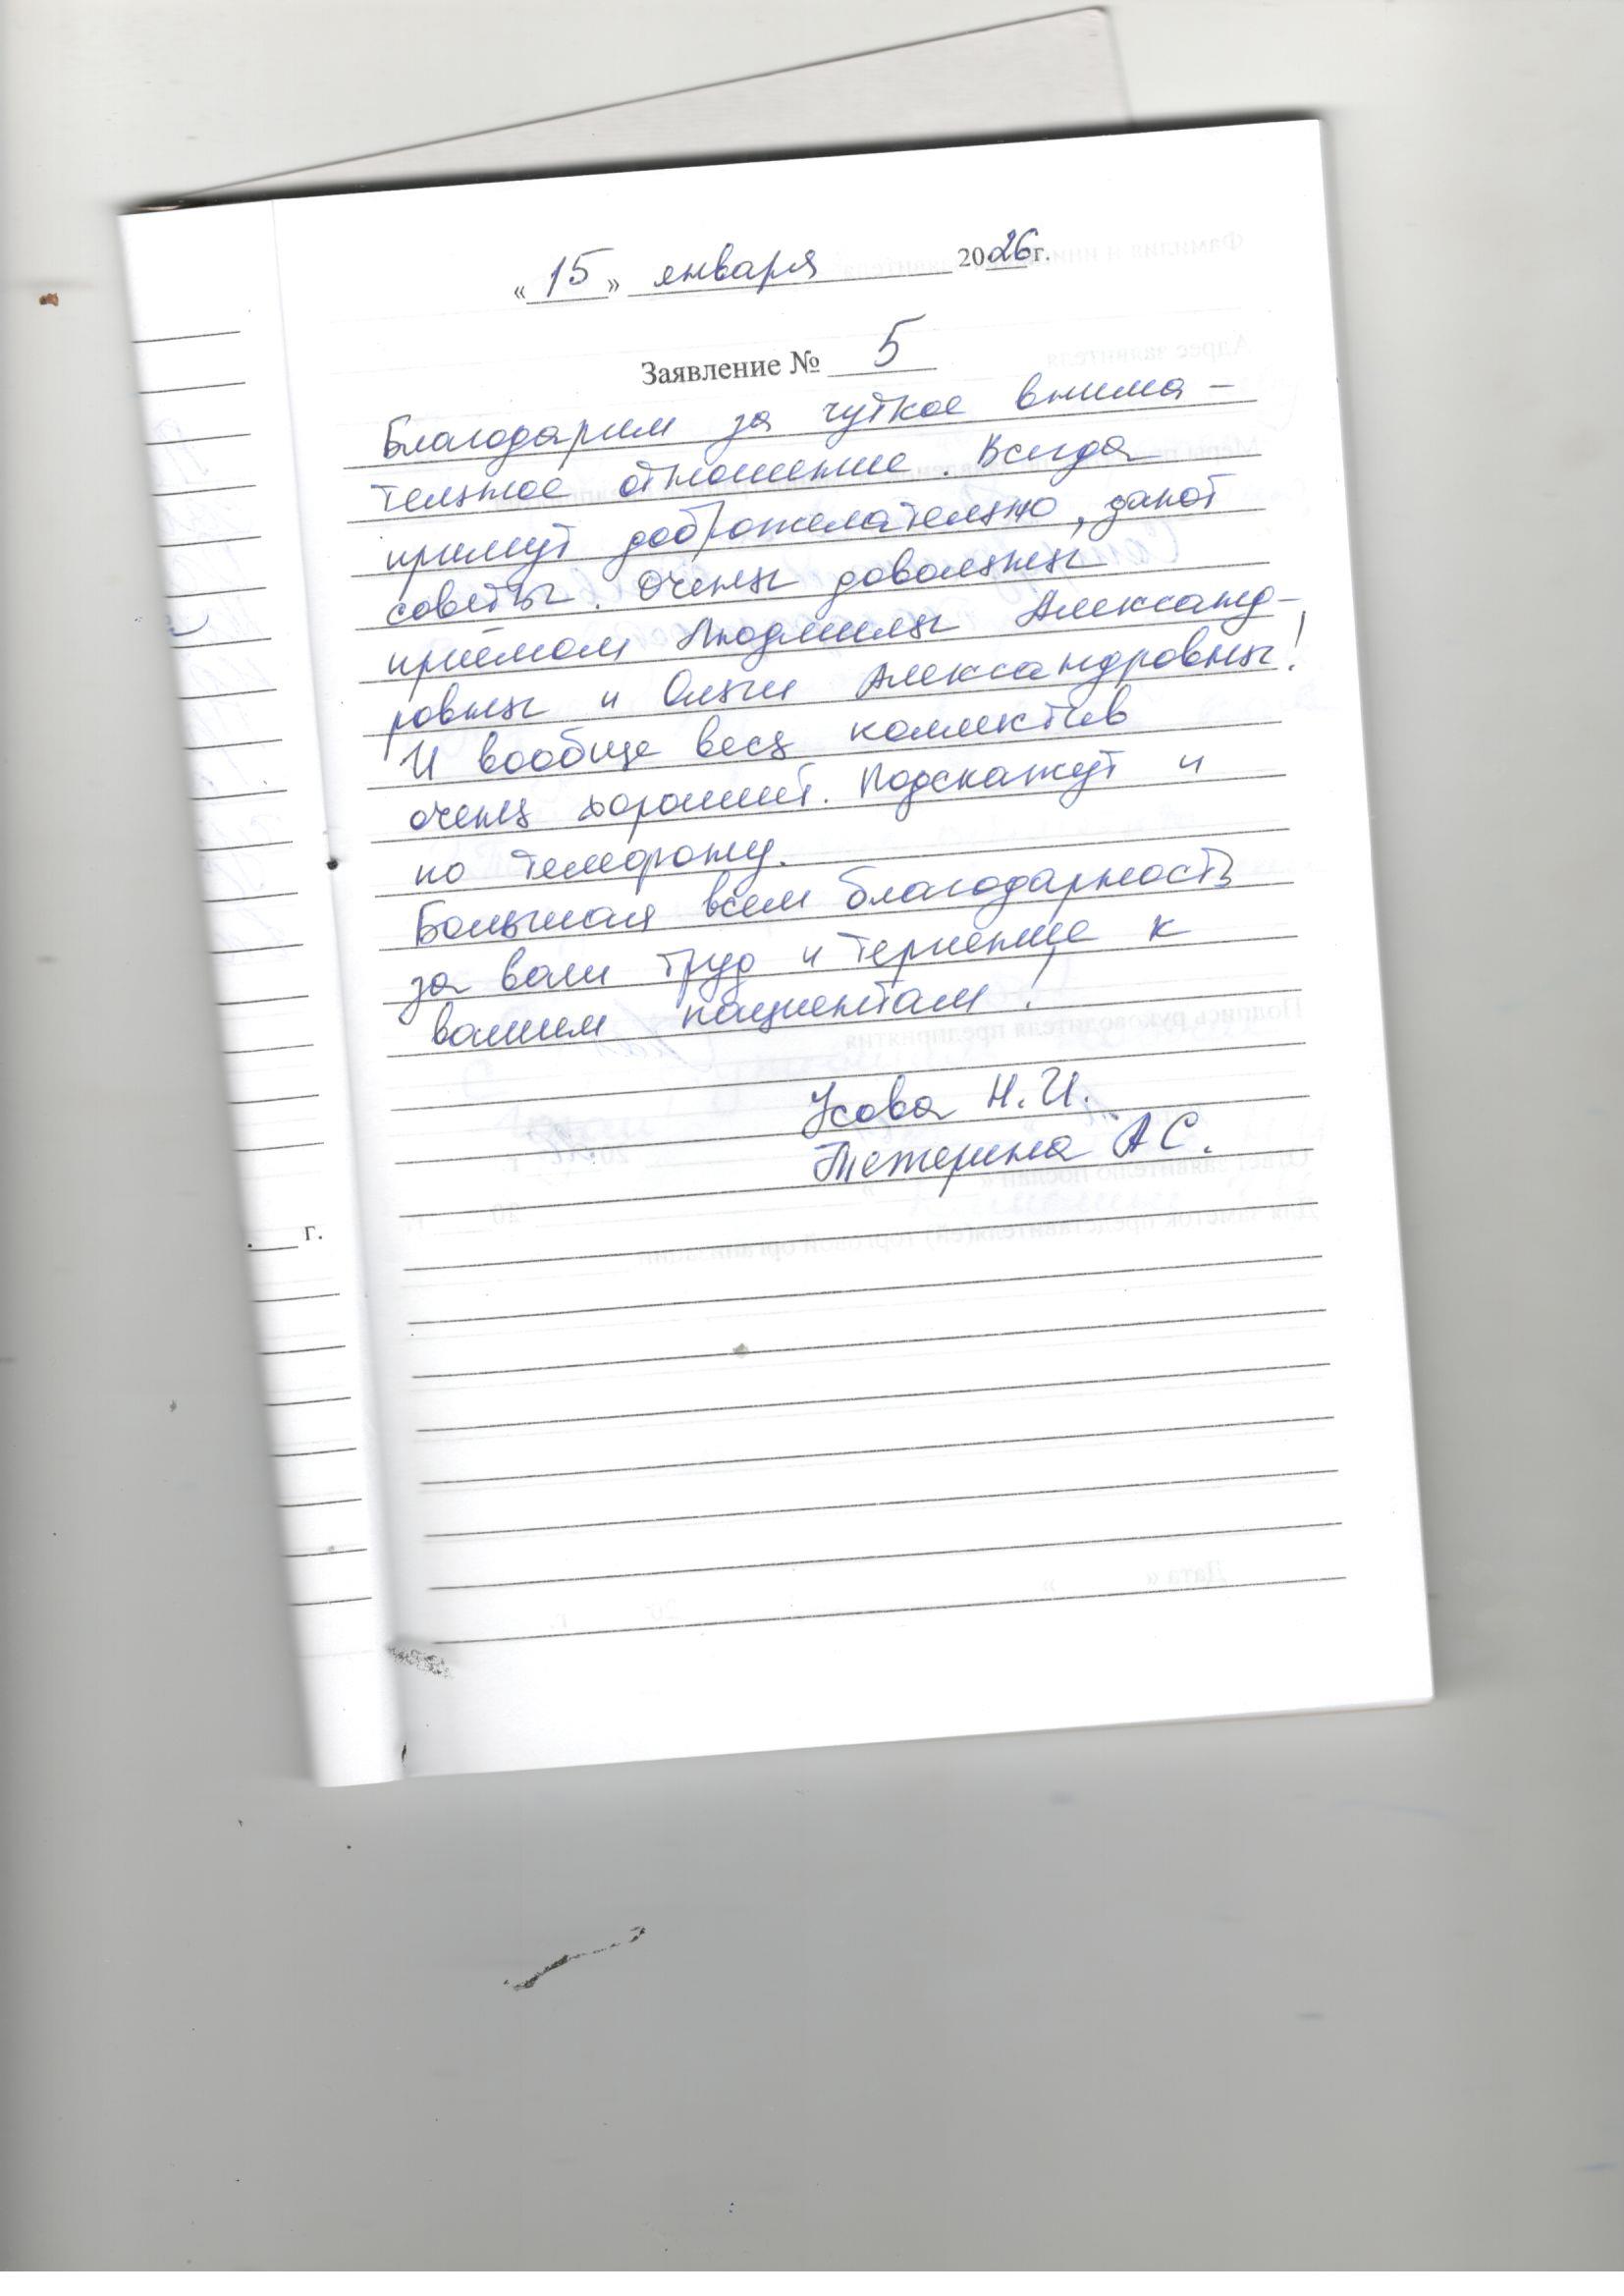 «15» января 2026г.
Заявление № 5
Благодарим за чуткое внима-
тельное отношение. Всегда
примут доброжелательно, дают
советы. Очень довольны
приёмом Людмилы Александ-
ровны и Ольги Александровны!
И вообще весь коллектив
очень хороший. Подскажут и
по телефону.
Большая всем благодарность
за ваш труд и терпение к
вашим пациентам!
Усова Н.И.
Тетерина А С.
г.